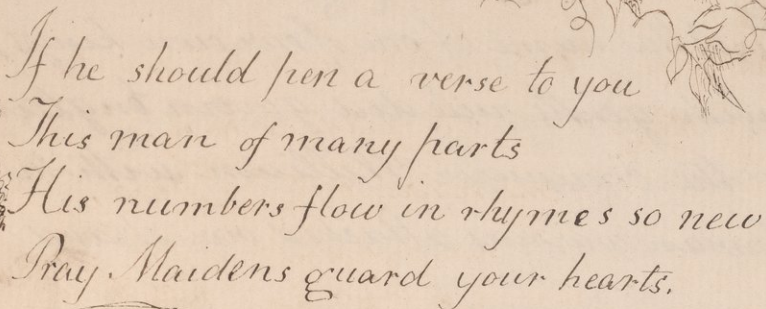 If he should pen a verse to you
This man of many parts
His numbers flow in rhymes so new
Pray Maidens guard your hearts.